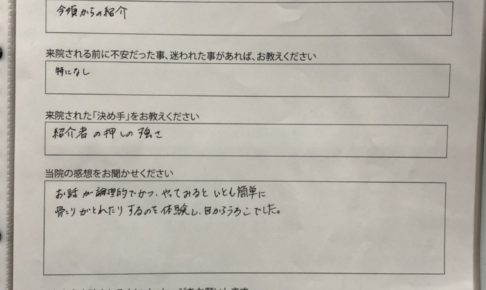 からの紹介
来院される前に不安だった事、迷われた事があれば、お教えください
特になし
来院された「決め手」をお教えください
紹介者の押しの強さ
当院の感想をお聞かせください
お話が論理的でかつ、やってみるといとも簡単に
骨こりがとれたりするのを体験し、目からうろこでした。